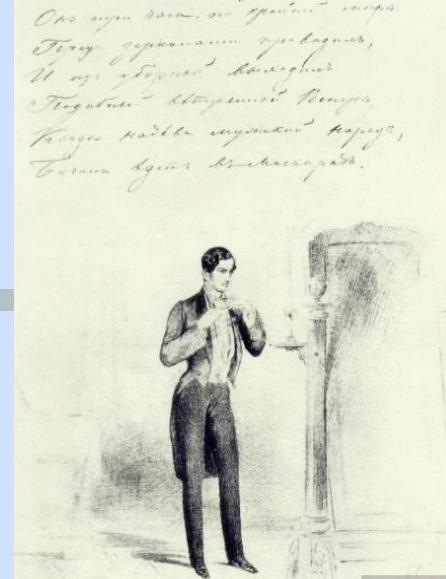 Онъ три часа, по крайней мѣрѣ
Предъ зеркалами проводилъ,
И изъ уборной выходилъ
Подобный вѣтренной Венерѣ,
Когда надѣвъ мужской нарядъ,
Богиня ѣдетъ въ маскарадъ.